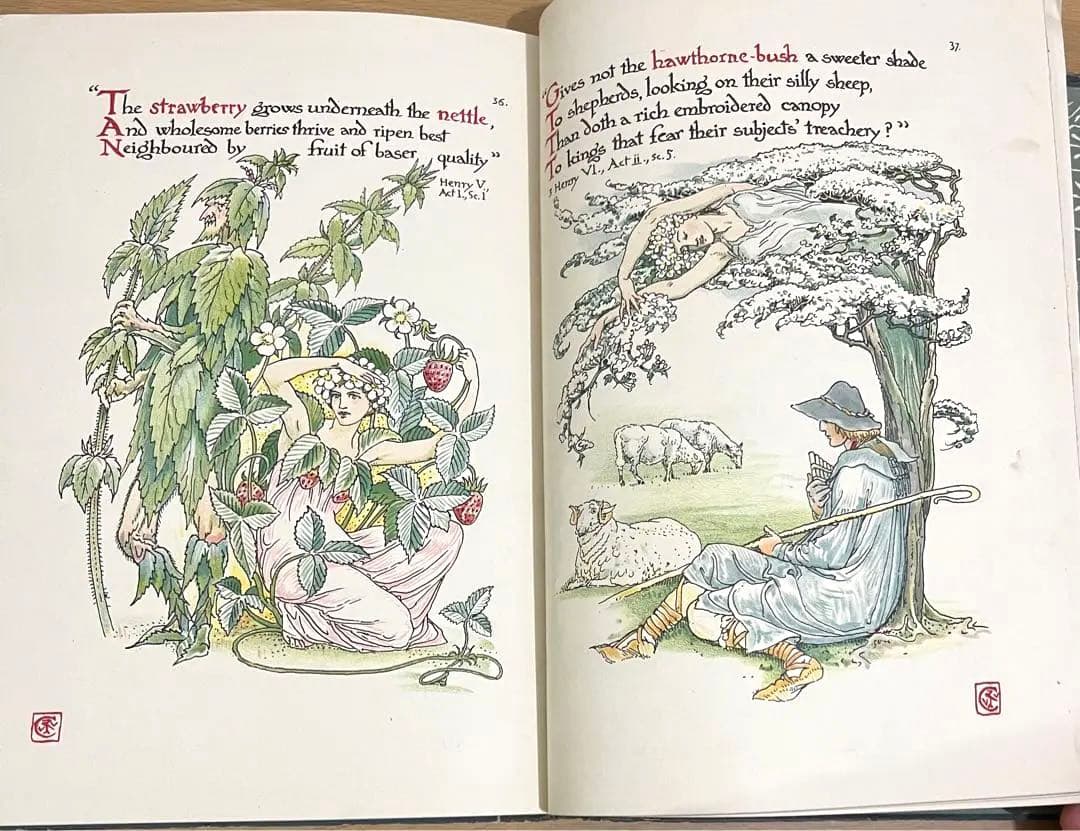 36.
“The strawberry grows underneath the nettle,
And wholesome berries thrive and ripen best
Neighboured by fruit of baser quality”
Henry V.,
Act I., Sc. 1
37.
“Gives not the hawthorne-bush a sweeter shade
To shepherds, looking on their silly sheep,
Than doth a rich embroidered canopy
To kings that fear their subjects' treachery?”
3 Henry VI., Act ii., Sc. 5.